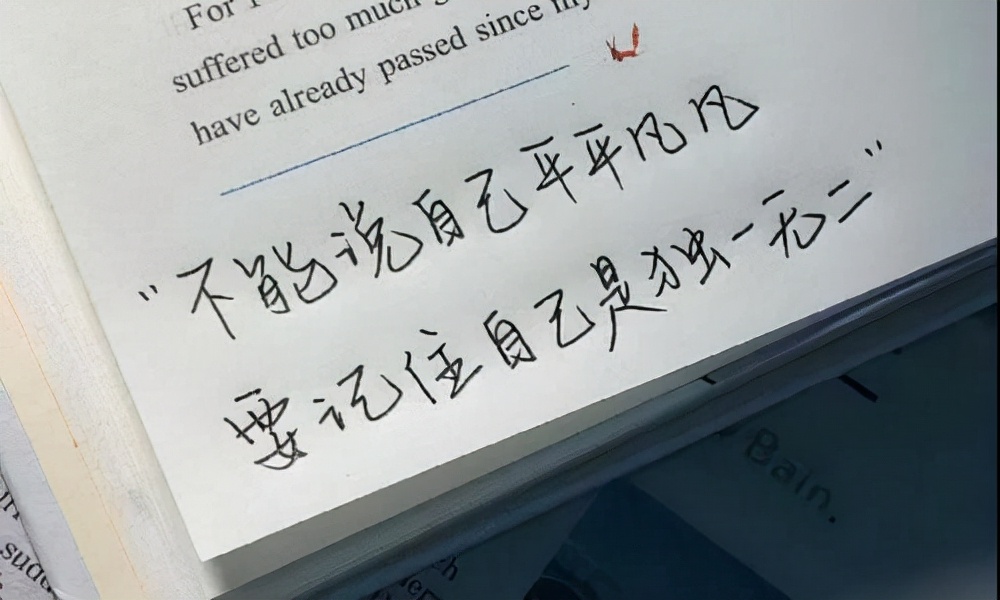 For
suffered too much
have already passed since my
“不能说自己平平凡凡
要记住自己是独一无二”
Bain.